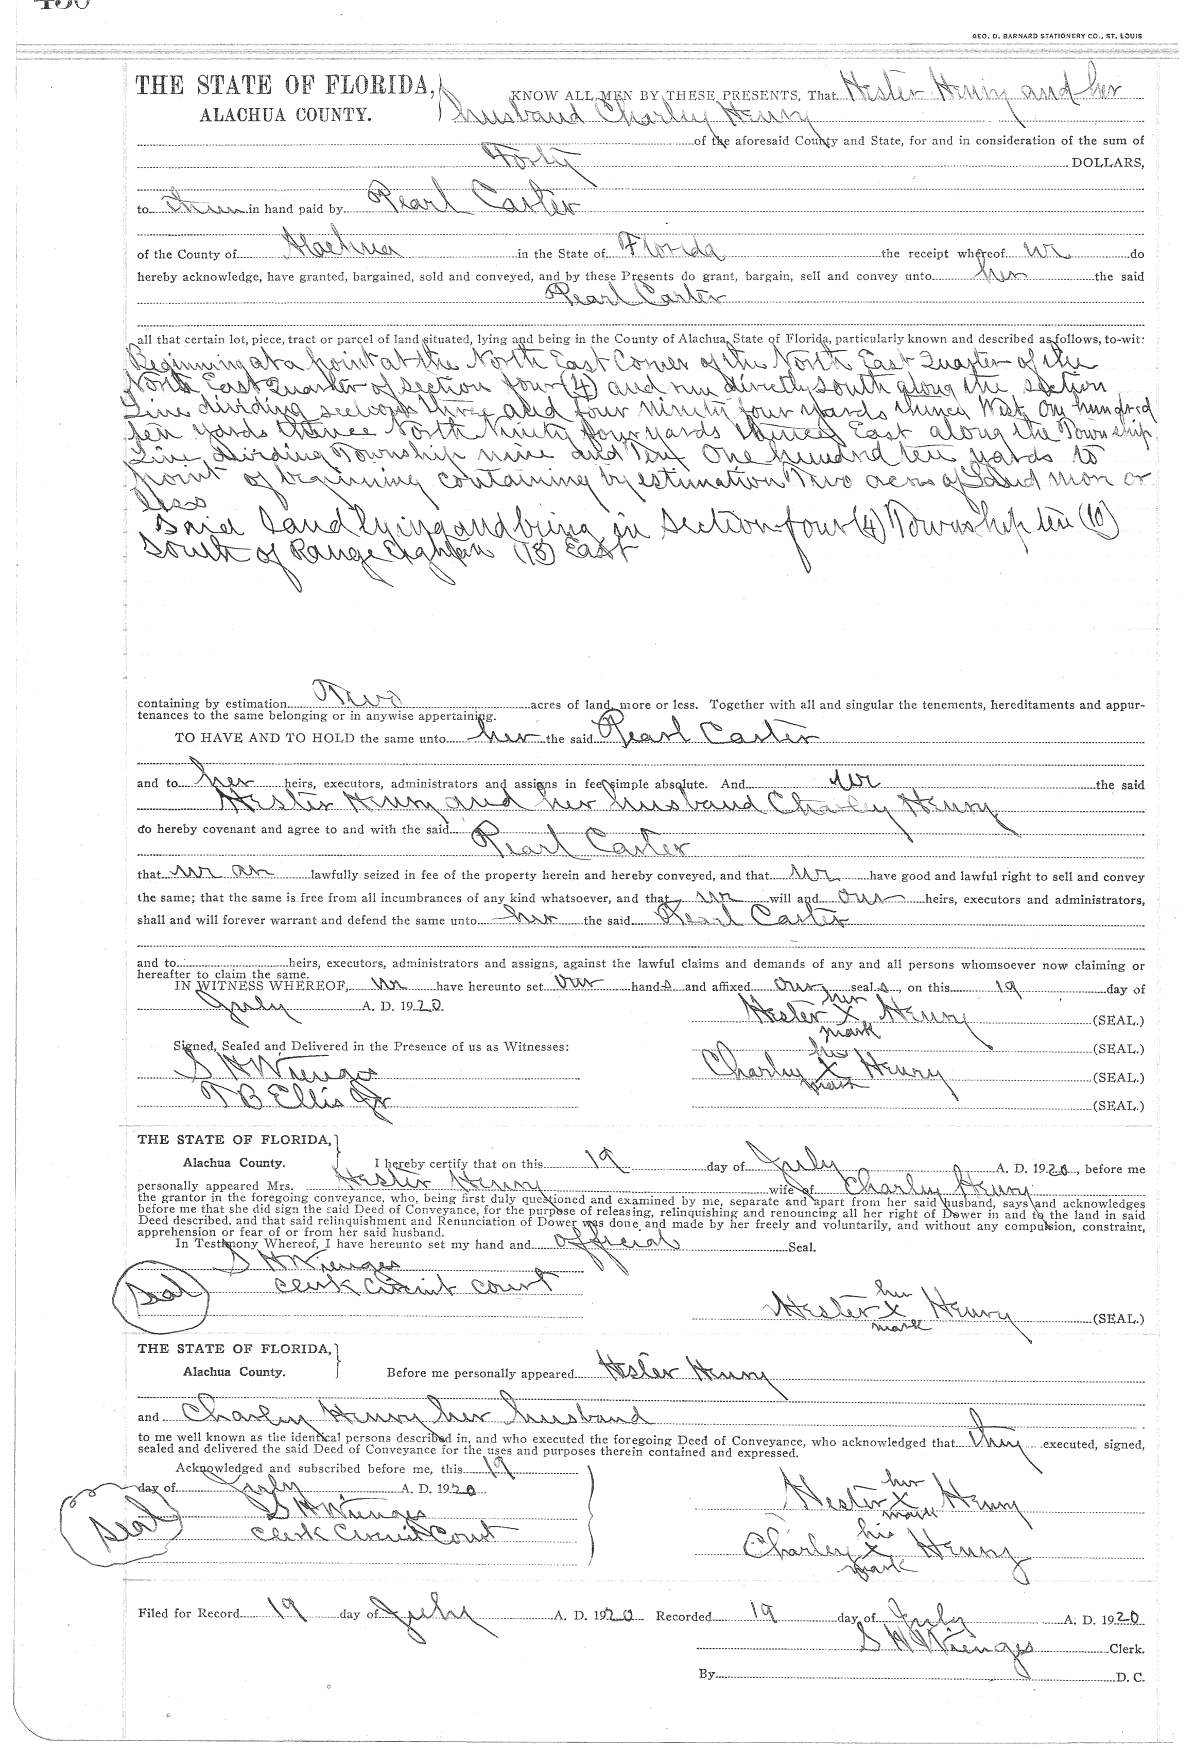 GEO. D. BARNARD STATIONERY CO., ST. LOUIS
THE STATE OF FLORIDA, KNOW ALL MEN BY THESE PRESENTS, That Hester Henry and her
ALACHUA COUNTY. husband Charley Henry
of the aforesaid County and State, for and in consideration of the sum of
Forty DOLLARS,
to them in hand paid by Pearl Carter
of the County of Alachua in the State of Florida the receipt whereof we do
hereby acknowledge, have granted, bargained, sold and conveyed, and by these Presents do grant, bargain, sell and convey unto her the said
Pearl Carter
all that certain lot, piece, tract or parcel of land situated, lying and being in the County of Alachua, State of Florida, particularly known and described as follows, to-wit:
Beginning at a point at the North East Corner of the North East Quarter of the
North East Quarter of section four (4) and run directly south along the section
Line dividing section three and four ninety four yards thence West One hundred
ten yards thence North Ninety four yards thence East along the Township
Line dividing Township nine and Ten One hundred ten yards to
point of beginning containing by estimation Two acres of Land more or
less
Said Land lying and being in Section four (4) Township ten (10)
South of Range Eighteen (18) East
containing by estimation Two acres of land, more or less. Together with all and singular the tenements, hereditaments and appur-
tenances to the same belonging or in anywise appertaining.
TO HAVE AND TO HOLD the same unto her the said Pearl Carter
and to her heirs, executors, administrators and assigns in fee simple absolute. And we the said
Hester Henry and her husband Charley Henry
do hereby covenant and agree to and with the said
Pearl Carter
that we are lawfully seized in fee of the property herein and hereby conveyed, and that we have good and lawful right to sell and convey
the same; that the same is free from all incumbrances of any kind whatsoever, and that we will and our heirs, executors and administrators,
shall and will forever warrant and defend the same unto her the said Pearl Carter
and to heirs, executors, administrators and assigns, against the lawful claims and demands of any and all persons whomsoever now claiming or
hereafter to claim the same.
IN WITNESS WHEREOF, we have hereunto set our hands and affixed our seals, on this 19 day of
July A. D. 1920
her
Hester X Henry (SEAL.)
mark
Signed, Sealed and Delivered in the Presence of us as Witnesses: his (SEAL.)
S H Wienges Charley X Henry (SEAL.)
mark
T B Ellis Jr (SEAL.)
THE STATE OF FLORIDA,
Alachua County. I hereby certify that on this 19 day of July A. D. 1920, before me
personally appeared Mrs. Hester Henry wife of Charley Henry
the grantor in the foregoing conveyance, who, being first duly questioned and examined by me, separate and apart from her said husband, says and acknowledges
before me that she did sign the said Deed of Conveyance, for the purpose of releasing, relinquishing and renouncing all her right of Dower in and to the land in said
Deed described, and that said relinquishment and Renunciation of Dower was done and made by her freely and voluntarily, and without any compulsion, constraint,
apprehension or fear of or from her said husband.
In Testimony Whereof, I have hereunto set my hand and official Seal.
S H Wienges
Seal Clerk Circuit Court
her
Hester X Henry (SEAL.)
mark
THE STATE OF FLORIDA,
Alachua County. Before me personally appeared Hester Henry
and Charley Henry her husband
to me well known as the identical persons described in, and who executed the foregoing Deed of Conveyance, who acknowledged that they executed, signed,
sealed and delivered the said Deed of Conveyance for the uses and purposes therein contained and expressed.
Acknowledged and subscribed before me, this 19
day of July A. D. 1920
her
Hester X Henry
mark
S H Wienges
Seal Clerk Circuit Court
his
Charley X Henry
mark
Filed for Record 19 day of July A. D. 1920 Recorded 19 day of July A. D. 1920
S H Wienges Clerk.
By D. C.